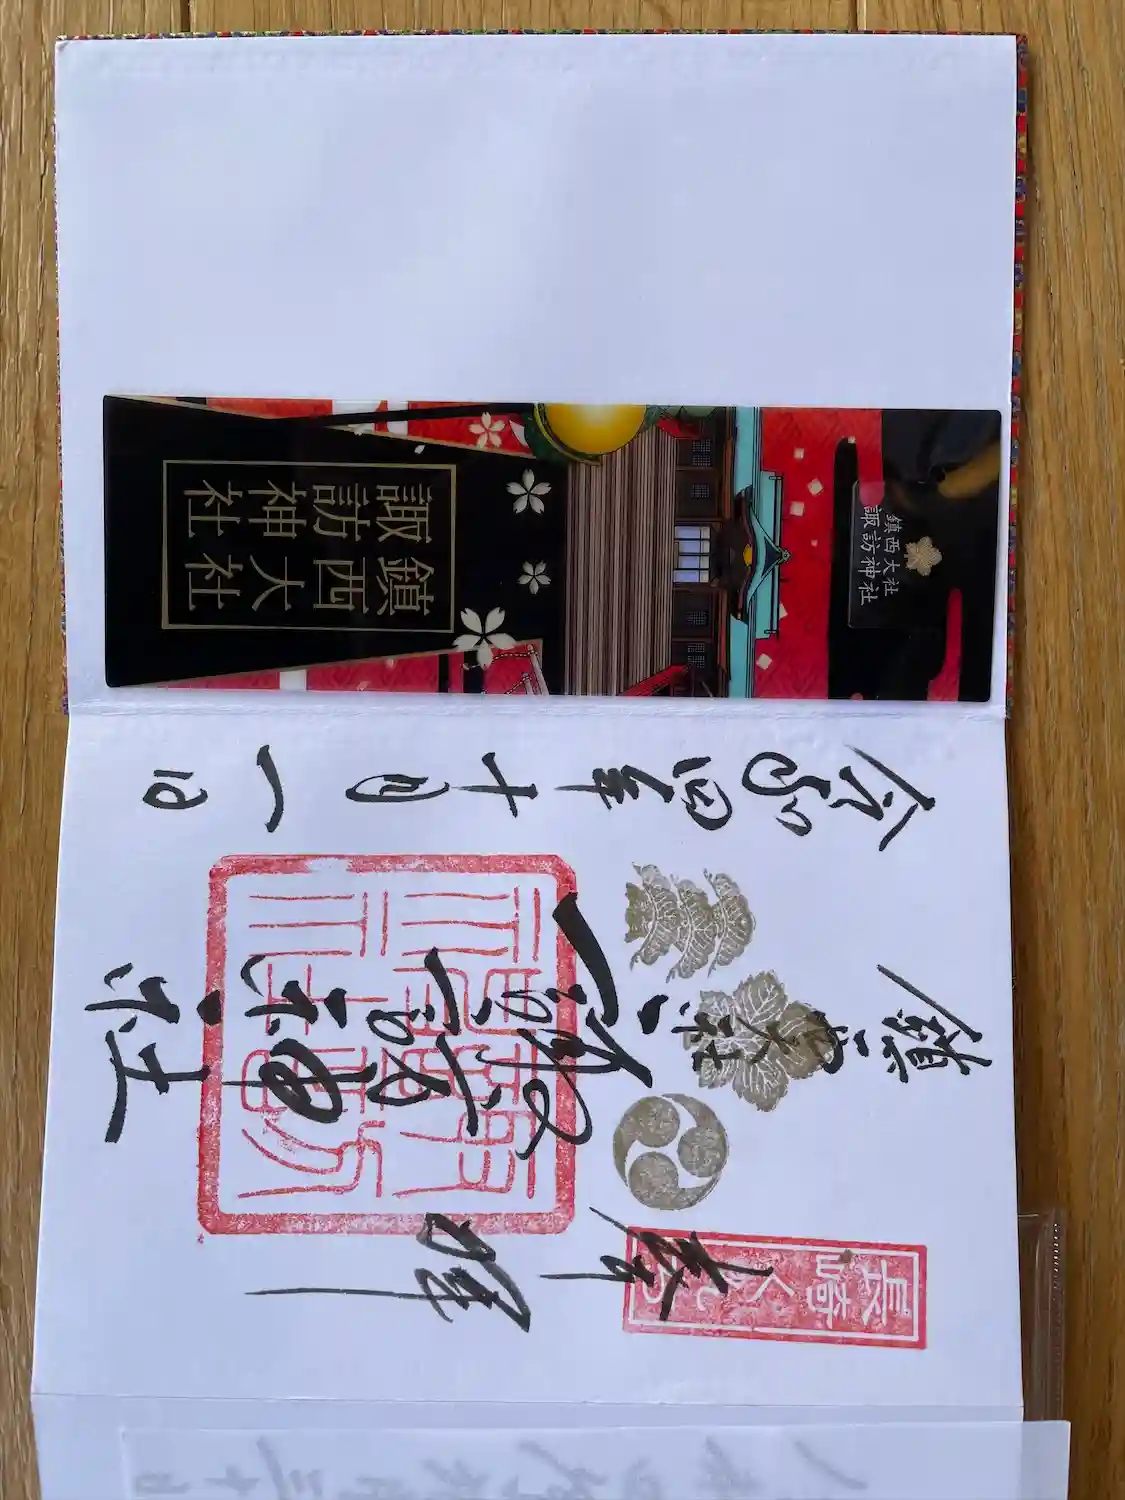 奉拝
長崎くんち
鎮西大社
諏訪神社
令和四年十月一日
鎮西大社
諏訪神社
鎮西大社
諏訪神社